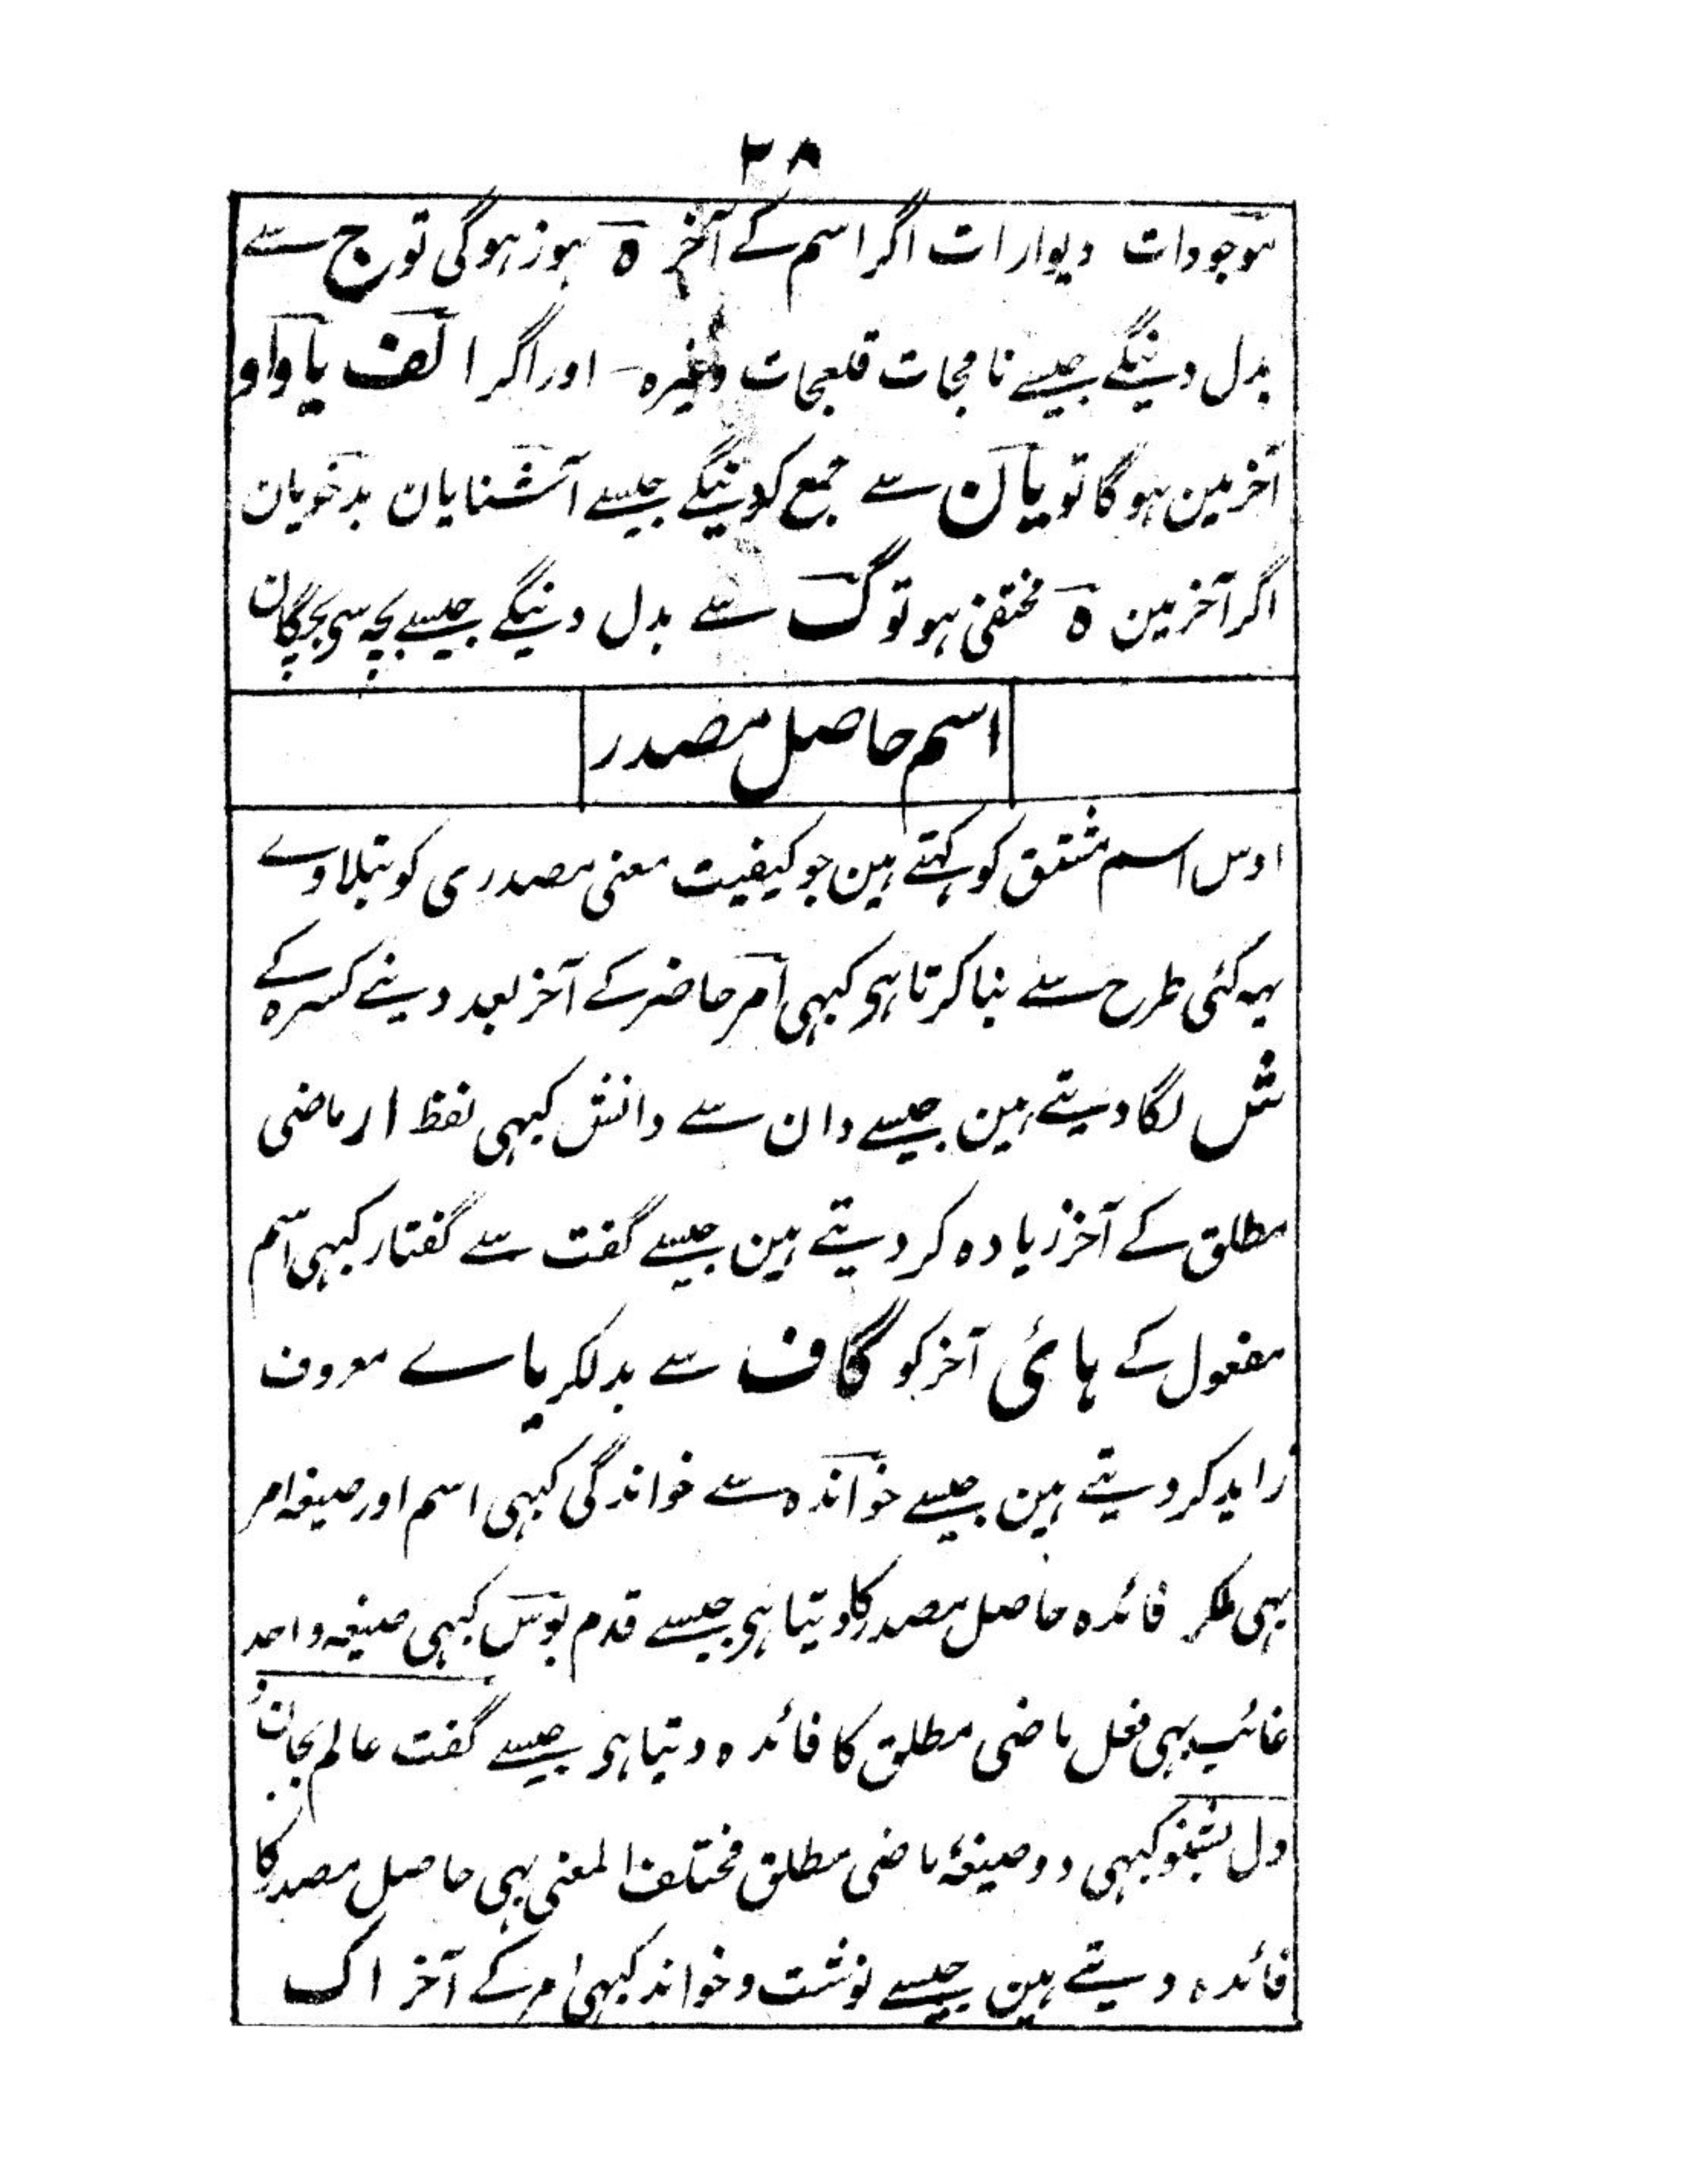 ۲۸
موجودات دیوارات اگر اسم کے آخر ہ ہوز ہوگی تو ج سے
بدل دینگے جیسے نامجات قلعجات وغیرہ - اور اگر الف یا واو
آخر مین ہوگا تو یان سے جمع کرینگے جیسے آشنایان بدخویان
اگر آخر مین ہ مختفی ہو تو گ سے بدل دینگے جیسے بچہ سی بچگان
اسم حاصل مصدر
اوس اسم مشتق کو کہتے ہین جو کیفیت معنی مصدری کو بتلاوے
یہہ کئی طرح سے بنا کرتا ہی کبہی امر حاضر کے آخر بعد دینے کسرہ کے
ش لگا دیتے ہین جیسے دان سے دانش کبہی لفظ ار ماضی
مطلق کے آخر زیادہ کر دیتے ہین جیسے گفت سے گفتار کبہی اسم
مفعول کے ہائ آخر کو گاف سے بدلکر یاے معروف
زاید کر دیتے ہین جیسے خواندہ سے خواندگی کبہی اسم اور صیغہ امر
بہی ملکر فائدہ حاصل مصدر کا دیتا ہی جیسے قدم بوس کبہی صیغہ واحد
غائب بہی فعل ماضی مطلق کا فائدہ دیتا ہی جیسے گفت عالم بجان و
دل بشنو کبہی دو صیغۂ ماضی مطلق مختلف المعنی بہی حاصل مصدر کا
فائدہ دیتے ہین جیسے نوشت و خواند کبہی امر کے آخر اک